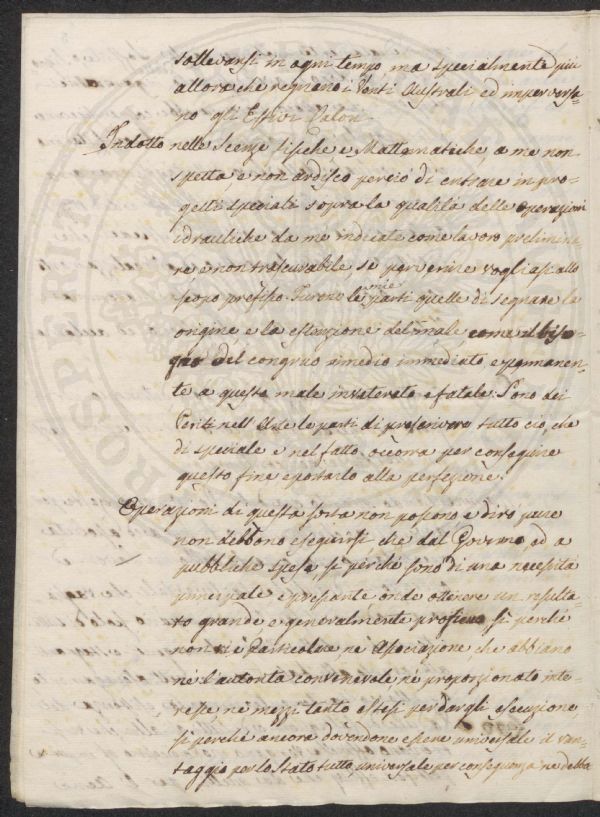 sollevarsi in ogni tempo, ma specialmente più
allora che regnano i Venti Australi ed imperversa-
no gli Estivi Calori
Indotto nelle Scienze Fisiche, e Mattematiche, a me non
spetta, e non ardisco perciò di entrare in pro-
getti speciali sopra la qualità delle operazioni
idrauliche da me indicate come lavoro prelimina-
re e non trascurabile se pervenire vogliasi allo
scopo prefisso. Furono le mie parti quelle di segnare la
origine e la estenzione del male come il biso-
gno del congruo rimedio immediato e permanen-
te a questo male inveterato e fatale. Sono dei
Periti nell'Arte le parti di preserivere tutto ciò, che
di speciale e nel fatto occorra per conseguire
questo fine e portarlo alla perfezione.
Operazioni di questa sorta non possono e dirò pure
non debbono eseguirsi che dal Governo, ed a
pubbliche spese, sì perché sono di una necessità
principale e pressante onde ottenere un resulta-
to grande e generalmente proficuo sì perché
non vi è Particolare nè Associazione, che abbiano
nè l'autorità convenevole nè proporzionato inte-
resse, nè mezzi tanto estesi per dargli esecuzione,
sì perché ancora dovendone essere universale il van-
taggio per lo Stato tutto universale per conseguenza ne debba
PROSPERITÀ